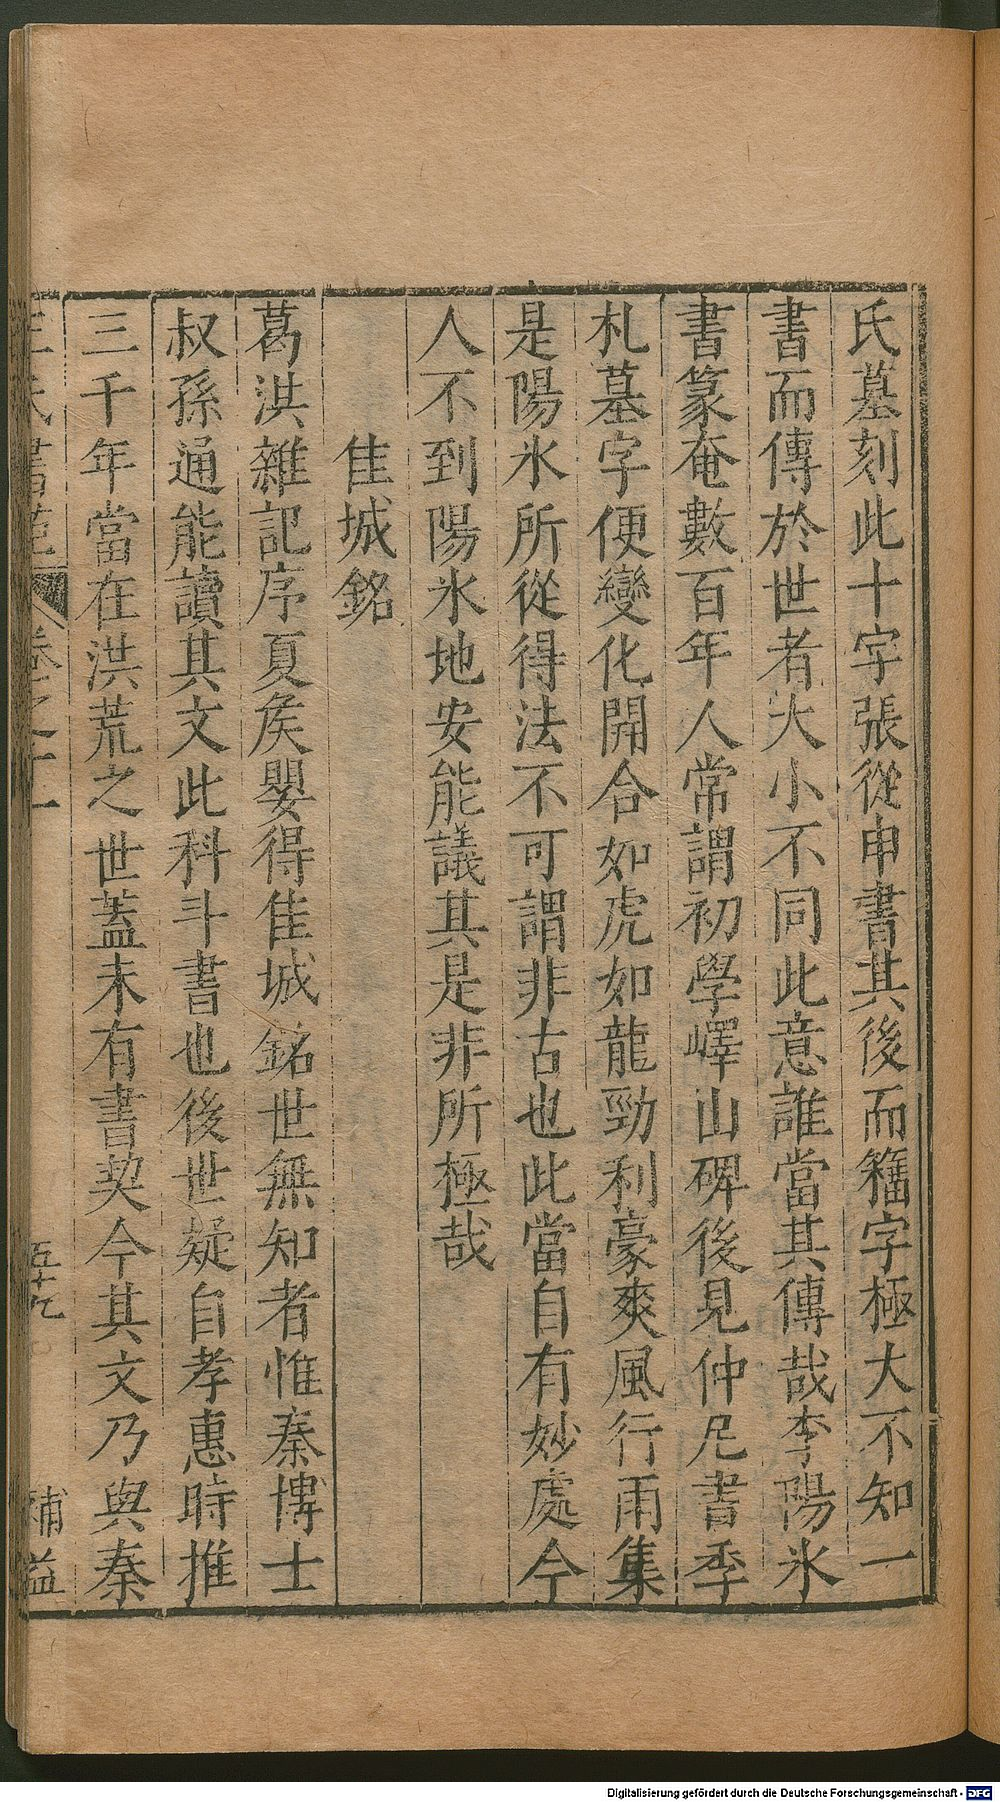 氏墓刻此十字張從申書其後而籀字極大不知一
書而傳於世者大小不同此意誰當其傳哉李陽氷
書篆奄數百年人常謂初學嶧山碑後見仲尼書季
札墓字便變化開合如虎如龍勁利豪爽風行雨集
是陽氷所從得法不可謂非古也此當自有妙處今
人不到陽氷地安能議其是非所極哉
佳城銘
葛洪雜記序夏矦嬰得佳城銘世無知者惟秦博士
叔孫通能讀其文此科斗書也後世疑自孝惠時推
三千年當在洪荒之世蓋未有書契今其文乃與秦
王氏書苑 卷之十一 五十九 補益
Digitalisierung gefördert durch die Deutsche Forschungsgemeinschaft - DFG